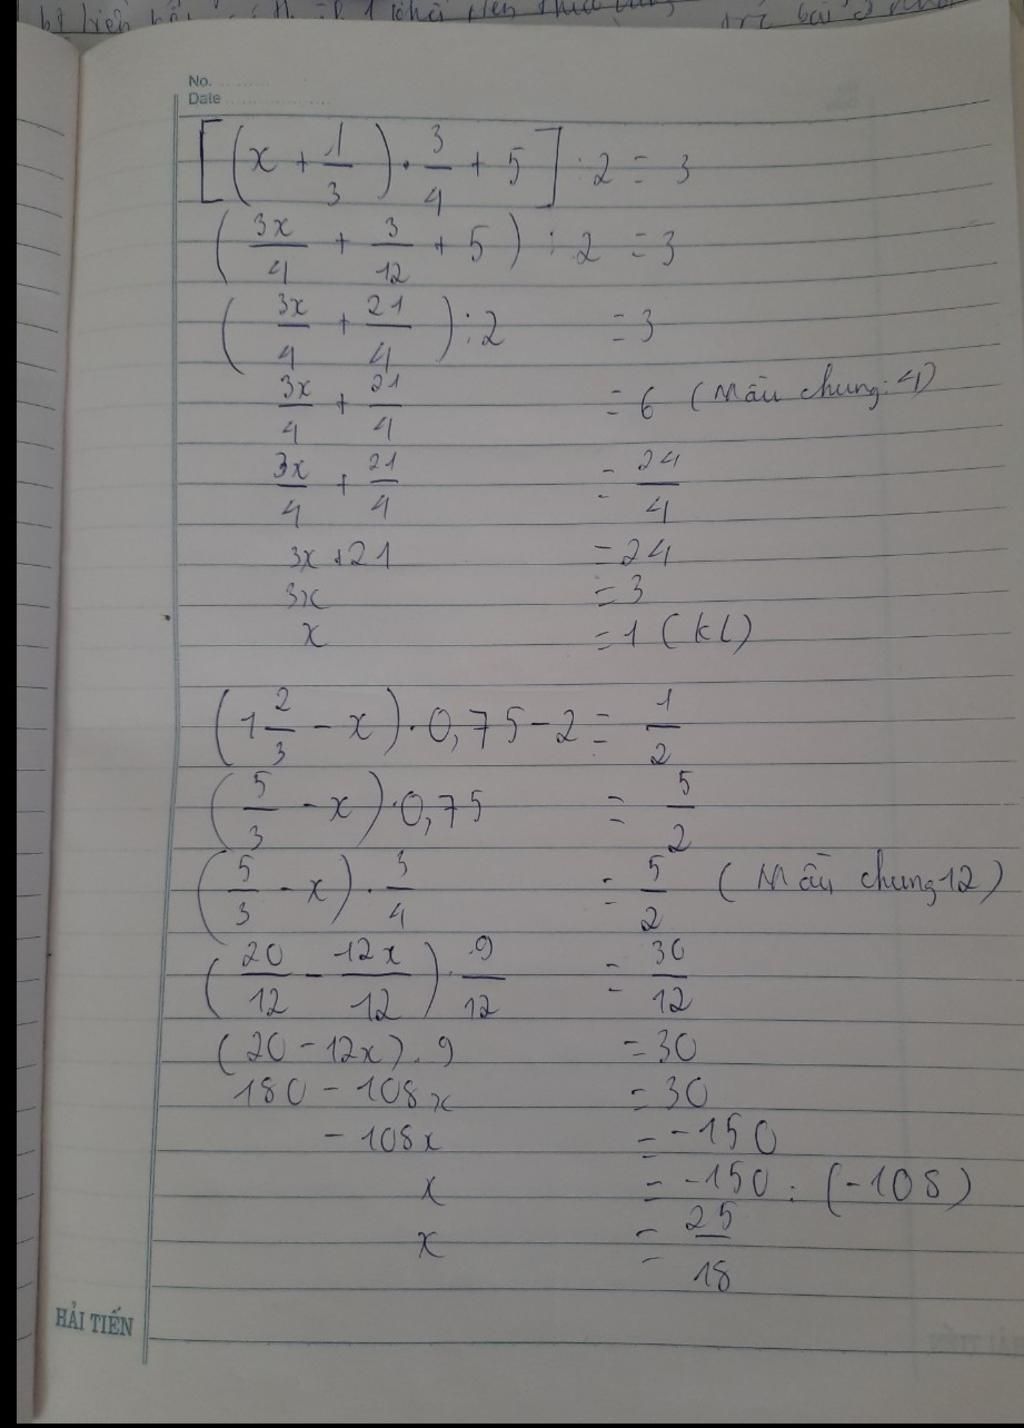 No. ..........
Date ....................
[(x + 1/3) . 3/4 + 5] : 2 = 3
(3x/4 + 3/12 + 5) : 2 = 3
(3x/4 + 21/4) : 2 = 3
3x/4 + 21/4 = 6 (Mẫu chung: 4)
3x/4 + 21/4 = 24/4
3x + 21 = 24
3x = 3
x = 1 (KL)
(1 2/3 - x) . 0,75 - 2 = 1/2
(5/3 - x) . 0,75 = 5/2
(5/3 - x) . 3/4 = 5/2 (Mẫu chung 12)
(20/12 - 12x/12) . 9/12 = 30/12
(20 - 12x) . 9 = 30
180 - 108x = 30
- 108x = -150
x = -150 : (-108)
x = 25/18
HẢI TIẾN